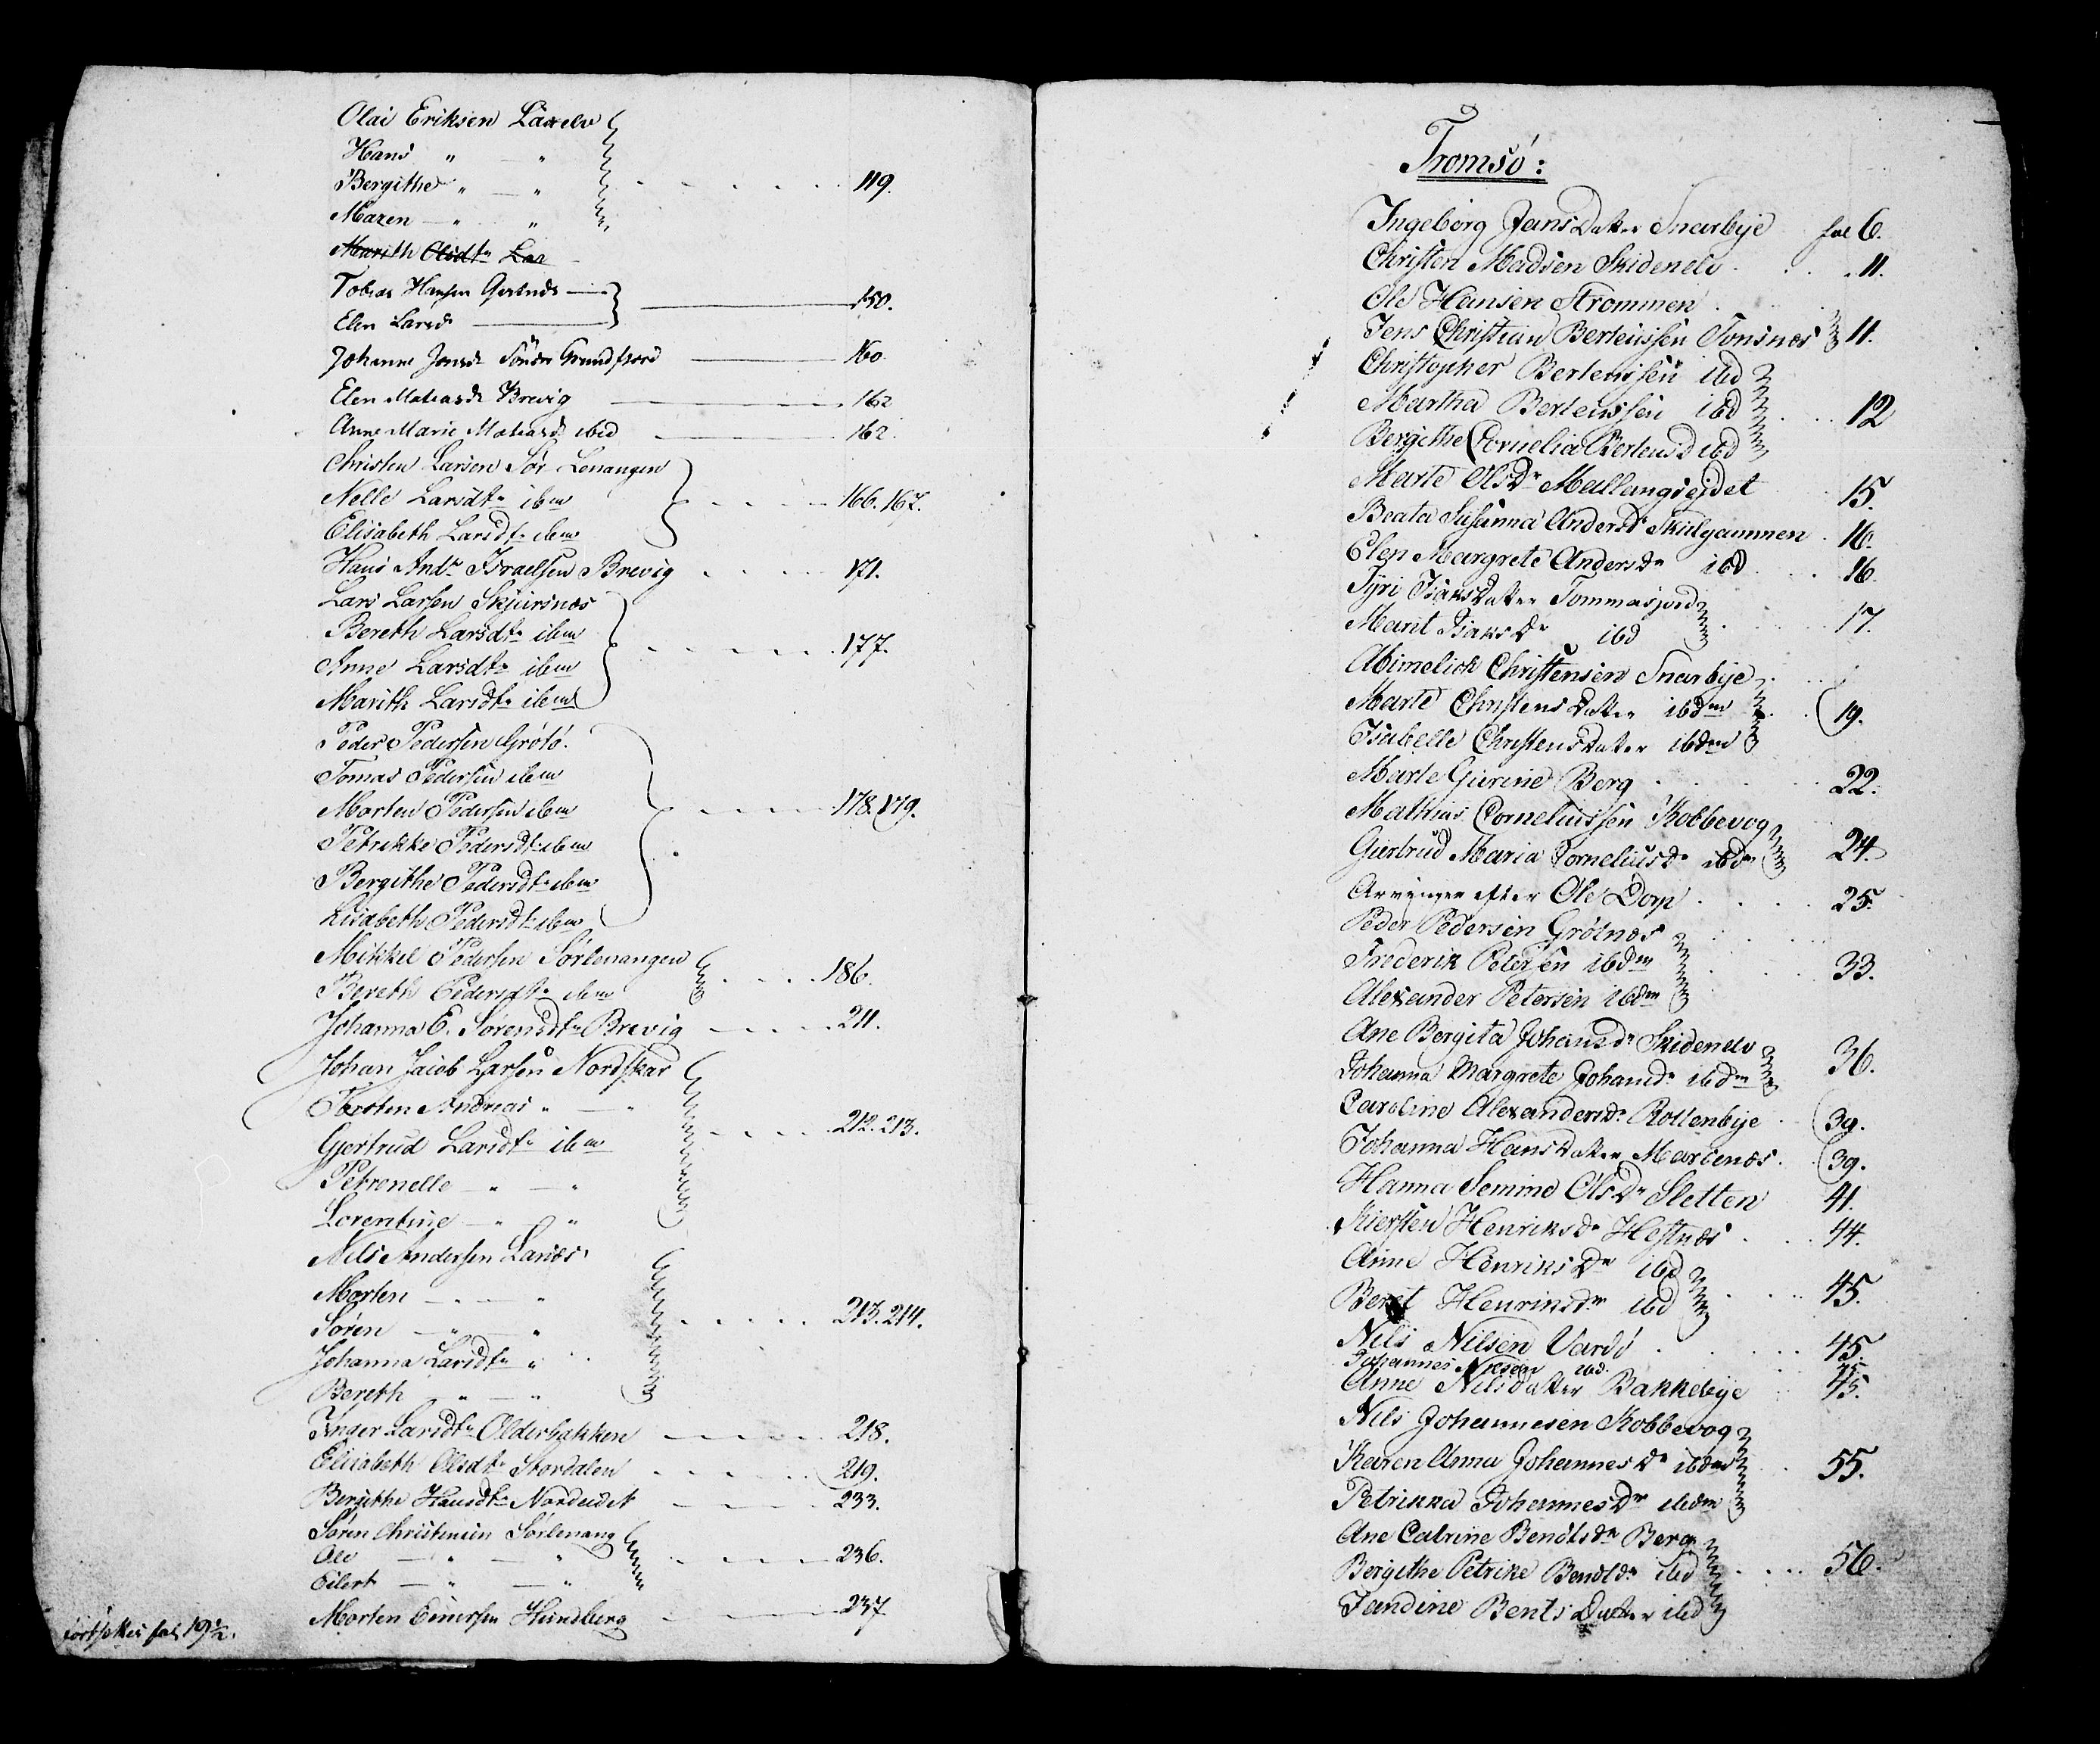 Olai Eriksen Laxelv
Hans " — "
Bergithe " — " 119.
Maren — " "
Marith Olsdtr Lax
Tobias Hansen Gjertnds
Elen Larsd 150.
Johanne Jonsd Sönder Grundfjord 160
Elen Matiasdr Brevig 162
Anne Marie Matiasd ibid 162.
Christen Larsen Sör Lenangen
Nelle Larsdtr ibm 166. 167.
Elisabeth Larsdtr ibm
Hans Andr Israelsen Brevig 171.
Lars Larsen Skjursnæs
Bereth Larsdtr ibm 177.
Anne Larsdtr ibm
Marith Larsdtr ibm
Peder Pedersen Grötö.
Tomas Pedersen ibm
Morten Pedersen ibm 178. 179.
Petrikke Pedersdtr ibm
Bergithe Pedersdtr ibm
Lisabeth Pedersdtr ibm
Mikkel Pedersen Sörlenangen
Bereth Pedersdtr ibm 186.
Johanna E. Sörensdtr Brevig 211.
Johan Jacob Larsen Nordskar
Torsten Andreas " — "
Gjertrud Larsdtr ibm 212. 213.
Petronelle — " — "
Lorentine — " — "
Nils Andersen Lanæs
Morten — " — "
Sören — " — " 213. 214.
Johanna Larsdtr "
Bereth " — "
Inger Larsdtr Olderbakken 218.
Elisabeth Olsdtr Stordalen 219.
Bergithe Hansdtr Nordeidet 233.
Sören Christensen Sörlenang
Ole — " — " 236.
Eilert — " — "
Morten Einersen Hundberg 237
fortsettes fol 19½.
Tromsö:
Ingeborg JansDatter Snarbye fol 6.
Christen Madsen Skidenelv 11.
Ole Hansen Strommen
Jens Christian Berteussen Tonsnæs 11.
Christopher Berteussen ibd
Martha Berteussen ibd 12
Bergithe Cornelia Berteusd ibd
Marte OlsDr Mallangsejdet 15.
Beata Susanna Andersdr Skulgammen 16.
Elen Margrete Andersdr ibd 16.
Syri IsaksDatter Tommasjord
Marit IsaksDr ibd 17.
Abimelick Christensen Snarbye
Marte ChristensDatter ibdm 19.
Isabelle ChristensDatter ibdm
Marte Gurine Berg 22.
Mathias Corneliussen Kobbevog
Giertrud Maria Corneliusdr ibdm 24.
Arvinger efter Ole Dorp 25.
Peder Pedersen Grötnæs
Frederik Petersen ibdm 33.
Alexander Petersen ibdm
Ane Bergita Johansdr Skidenelv
Johanna Margrete Johansdr ibdm 36.
Caroline Alexandersdr Kollenbye 39.
Johanna HansDatter Marienæs 39.
Hanna Semine OlsDr Sletten 41.
Kiersten Henriksdr Hestnæs 44.
Anne HenriksDr ibd
Beret Henriksdr ibd 45.
Nils Nilsen Vardö 45.
Johannes Nilsen ibd. 45
Anne Nilsdatter Bakkebye 45.
Nils Johannesen Kobbevog
Karen Anna JohannesDr ibdm 55.
Petrikka JohannesDr ibdm
Ane Catrine Bendtsdr Berg
Bergithe Petrike Bendtdr ibd 56.
Jandine BentsDatter ibd